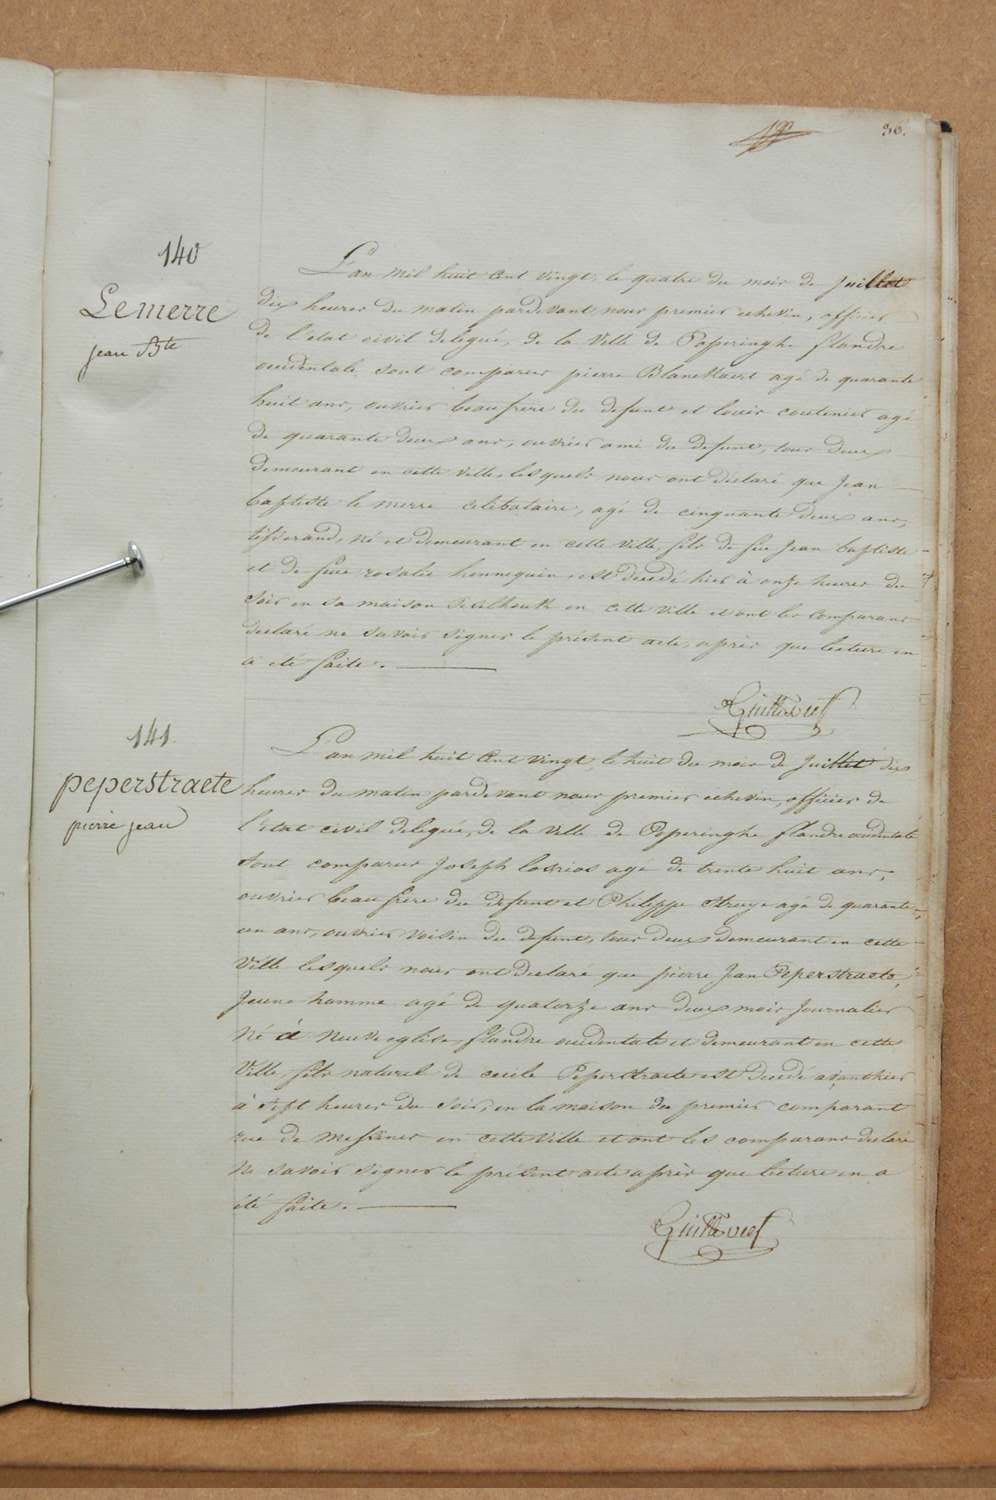 30.
140
Lemerre
jean Bte
L'an mil huit cent vingt, le quatre du mois de Juillet
dix heures du matin pardevant nous premier echevin, officier
de l'etat civil delégué, de la Ville de Poperinghe flandre
occidentale, sont comparus pierre Blanckaert agé de quarante
huit ans, ouvrier beaufrère du defunt et louis coutenier agé
de quarante deux ans, ouvrier ami du defunt, tous deux
demeurant en cette ville, lesquels nous ont déclaré que Jean
baptiste le merre celibataire, agé de cinquante deux ans,
tisserand, né et demeurant en cette ville fils de feu Jean baptiste
et de feue rosalie hennequin, est decedé hier à onze heures du
soir en sa maison en cette ville et ont les comparans
declaré ne savoir signer le présent acte, après que lecture en
a été faite.
141
peperstraete
pierre jean
L'an mil huit cent vingt, le huit du mois de Juillet dix
heures du matin pardevant nous premier echevin, officier de
l'etat civil delegué, de la Ville de Poperinghe flandre occidentale
sont comparus Joseph agé de trente huit ans,
ouvrier beaufrère du defunt et Philippe Struye agé de quarante
un ans, ouvrier voisin du defunt, tous deux demeurant en cette
Ville lesquels nous ont declaré que pierre Jean Peperstraete,
Jeune homme agé de quatorze ans deux mois Journalier
né à neuve eglise flandre occidentale et demeurant en cette
Ville, fils naturel de cecile Peperstraete est decedé avanthier
à sept heures du soir, en la maison du premier comparant
rue de Messines en cette Ville et ont les comparans declaré
ne savoir signer le présent acte après que lecture en a
été faite.